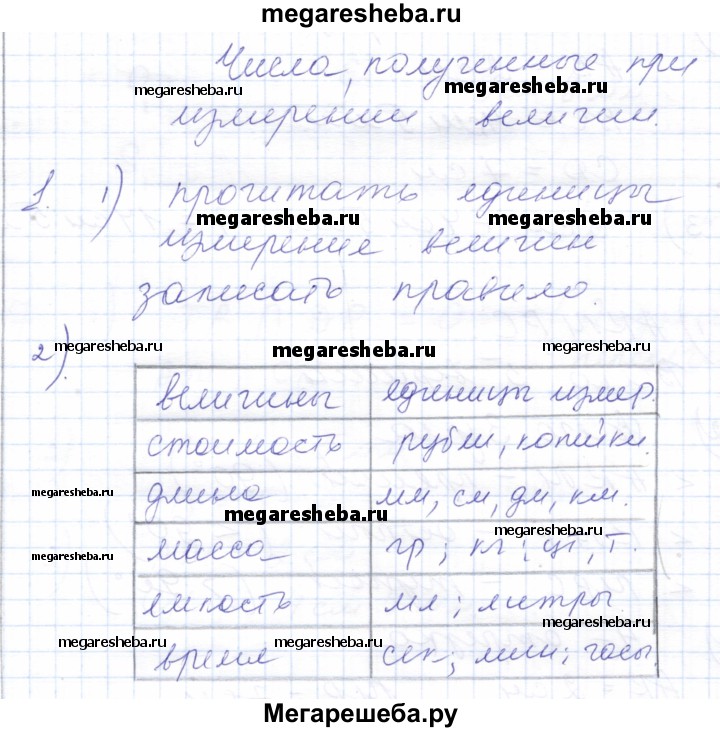 megaresheba.ru
Числа, полученные при
megaresheba.ru megaresheba.ru
измерении величин.
1. 1) прочитать единицы
megaresheba.ru megaresheba.ru
измерение величин
записать правило.
2).
megaresheba.ru megaresheba.ru megaresheba.ru
величины единицы измер.
стоимость рубли, копийки.
megaresheba.ru
длина мм, см, дм, км.
megaresheba.ru megaresheba.ru
megaresheba.ru
масса гр; кг; цт, т.
ёмкость мл; литры
megaresheba.ru megaresheba.ru megaresheba.ru
время сек; мин; часы.
Мегарешеба.ру